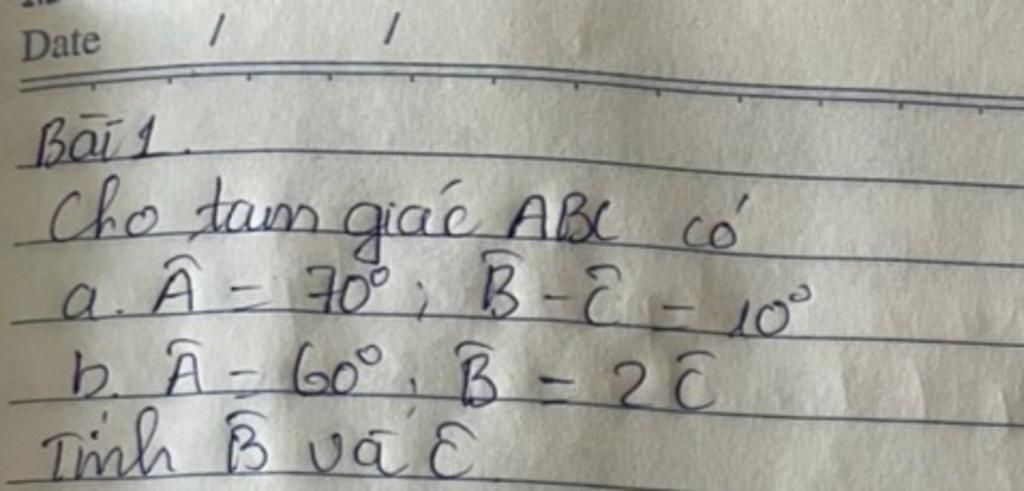 Date / /
Bài 1.
Cho tam giác ABC có
a. Â = 70°; B̂ - Ĉ = 10°
b. Â = 60°, B̂ = 2Ĉ
Tính B̂ và Ĉ